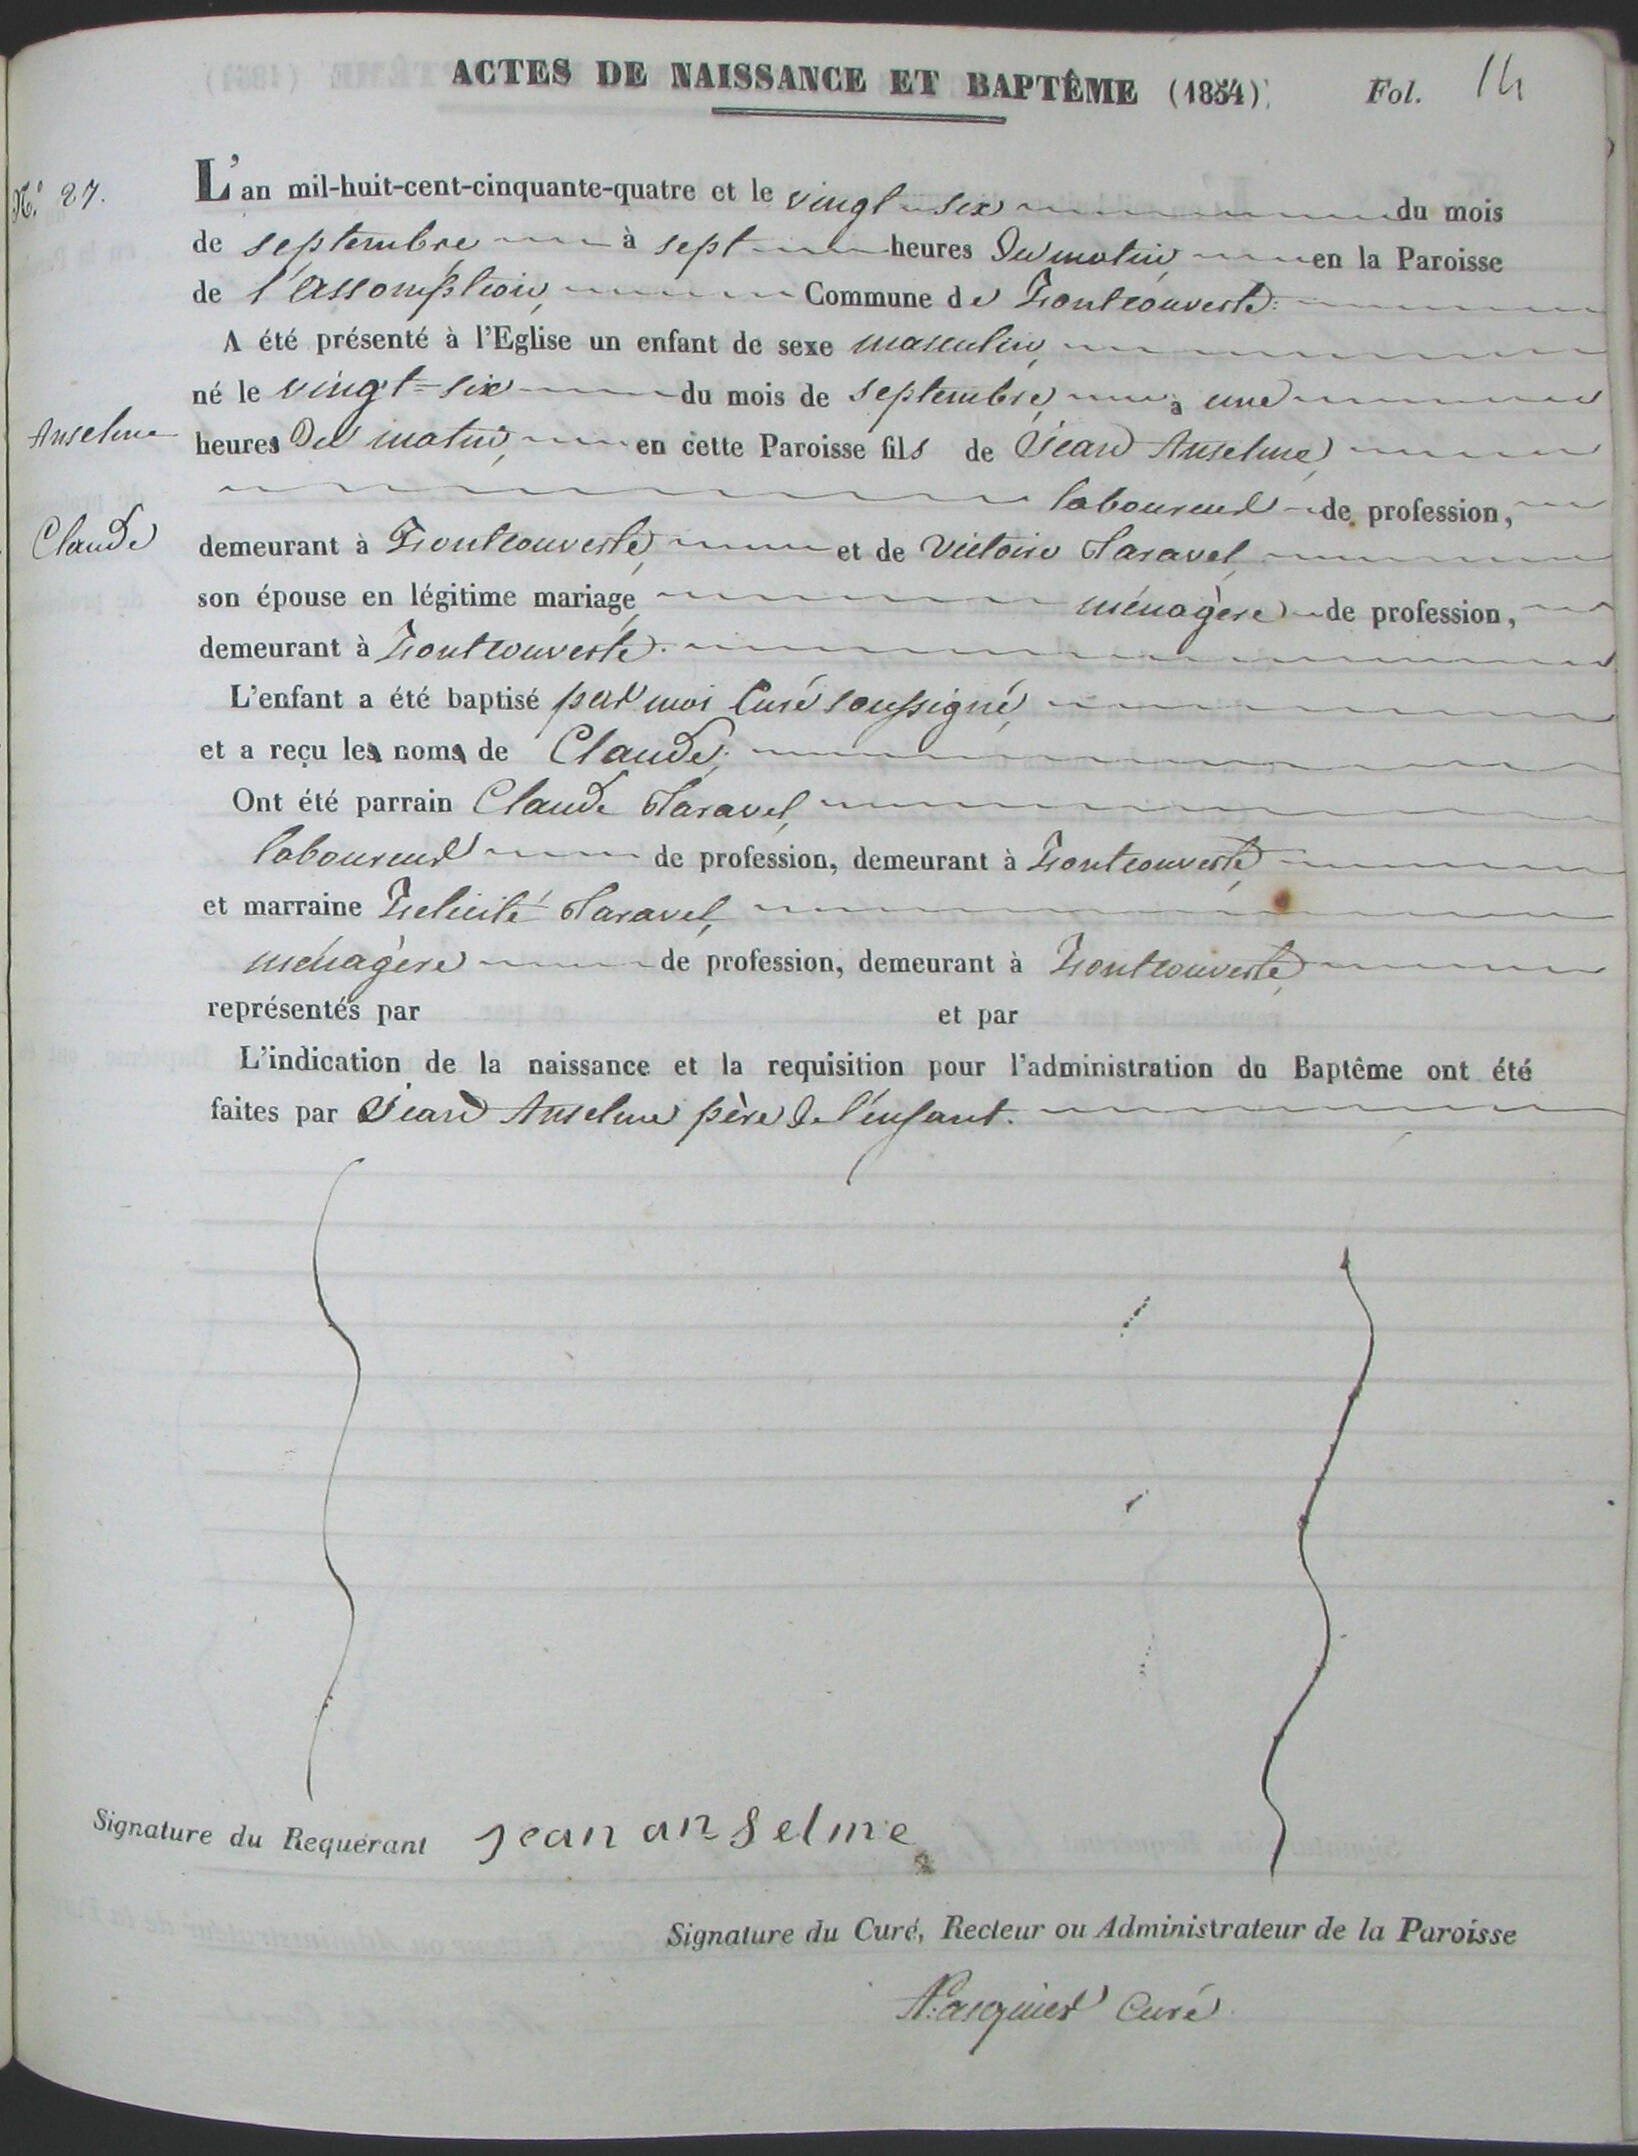 ACTES DE NAISSANCE ET BAPTÊME (1854) Fol. 14
N.° 27.
L'an mil-huit-cent-cinquante-quatre et le vingt-six du mois
de septembre à sept heures du matin, en la Paroisse
de l'assomption, Commune de Frontcouverte.
A été présenté à l'Eglise un enfant de sexe masculin,
né le vingt-six du mois de septembre, à une
Anselme
heures du matin, en cette Paroisse fils de Jean Anselme,
laboureur de profession,
Claude
demeurant à Frontcouverte, et de Victoire Taravel,
son épouse en légitime mariage, ménagère de profession,
demeurant à Frontcouverte.
L'enfant a été baptisé par moi Curé soussigné,
et a reçu les noms de Claude.
Ont été parrain Claude Taravel,
laboureur de profession, demeurant à Frontcouverte,
et marraine Felicité Taravel,
ménagère de profession, demeurant à Frontcouverte,
représentés par et par
L'indication de la naissance et la requisition pour l'administration du Baptême ont été
faites par Jean Anselme père de l'enfant.
Signature du Requérant jean anselme
Signature du Curé, Recteur ou Administrateur de la Paroisse
Pasquier Curé